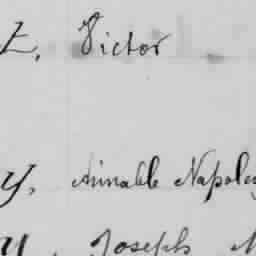 Z, Victor
y, Aimable Napoleo
y, Joseph N